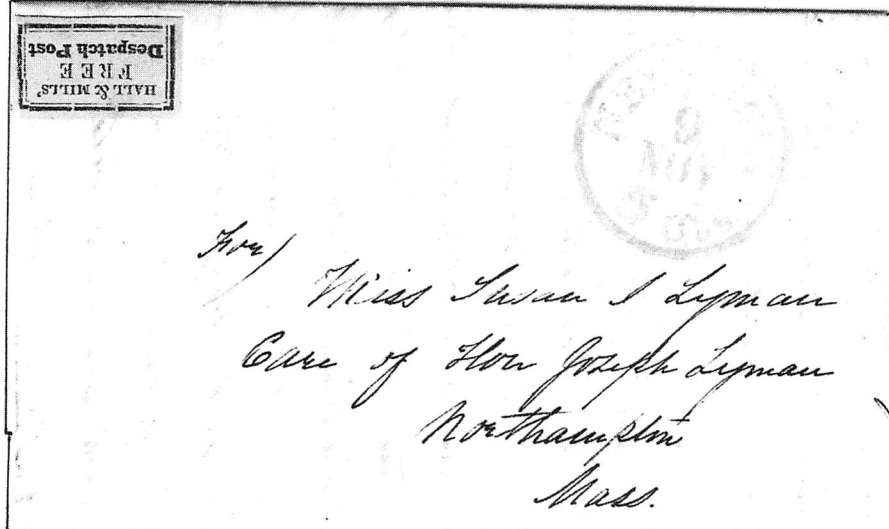 HALL & MILLS'
FREE
Despatch Post
9
NOV
5 Cts.
For)
Miss Susan I Lyman
Care of Hon Joseph Lyman
Northampton
Mass.